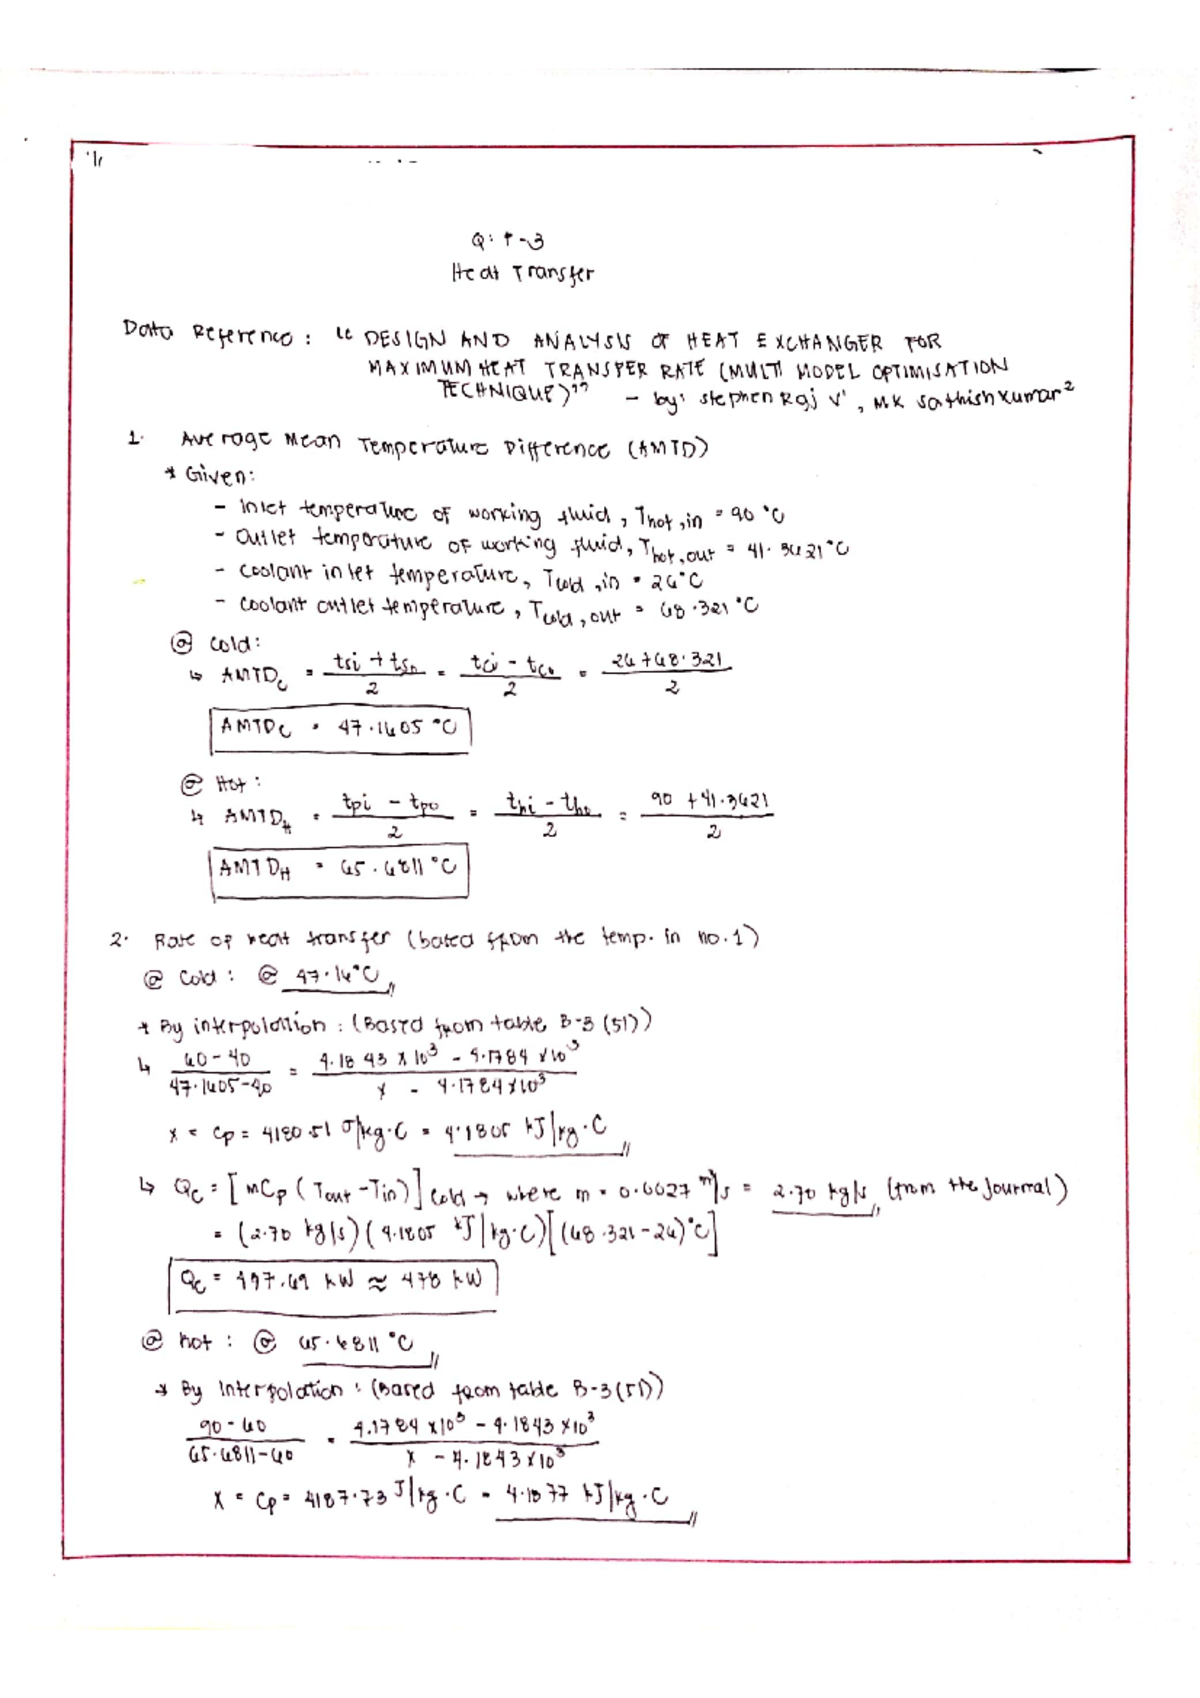 Q: t-3
Heat Transfer
Data Reference: "DESIGN AND ANALYSIS OF HEAT EXCHANGER FOR
MAXIMUM HEAT TRANSFER RATE (MULTI MODEL OPTIMISATION
TECHNIQUE)" - by: Stephen Raj V¹, MK Sathishkumar²
1. Average Mean Temperature Difference (AMTD)
* Given:
- Inlet temperature of working fluid, Thot,in = 90 °C
- Outlet temperature of working fluid, Thot,out = 41.3621 °C
- Coolant inlet temperature, Tcold,in = 26 °C
- Coolant outlet temperature, Tcold,out = 68.321 °C
@ Cold:
↳ AMTDC = (tsi + tso)/2 = (tci - tco)/2 = (26 + 68.321)/2
AMTDC = 47.1605 °C
@ Hot:
↳ AMTDH = (tpi - tpo)/2 = (thi - tho)/2 = (90 + 41.3621)/2
AMTDH = 65.6811 °C
2. Rate of heat transfer (based from the temp. in no. 1)
@ Cold: @ 47.16 °C
* By interpolation: (Based from table B-3 (SI))
↳ (60 - 40)/(47.1605 - 40) = (4.1843 x 10³ - 4.1784 x 10³)/(x - 4.1784 x 10³)
x = Cp = 4180.51 J/kg·C = 4.1805 kJ/kg·C
↳ QC = [mCp (Tout - Tin)] cold → where m = 0.0027 m³/s = 2.70 kg/s (from the journal)
= (2.70 kg/s)(4.1805 kJ/kg·C)[(68.321 - 26) °C]
QC = 477.69 kW ≈ 478 kW
@ hot: @ 65.6811 °C
* By Interpolation: (Based from table B-3 (SI))
(90 - 60)/(65.6811 - 60) = (4.1784 x 10³ - 4.1843 x 10³)/(x - 4.1843 x 10³)
x = Cp = 4187.73 J/kg·C = 4.1877 kJ/kg·C